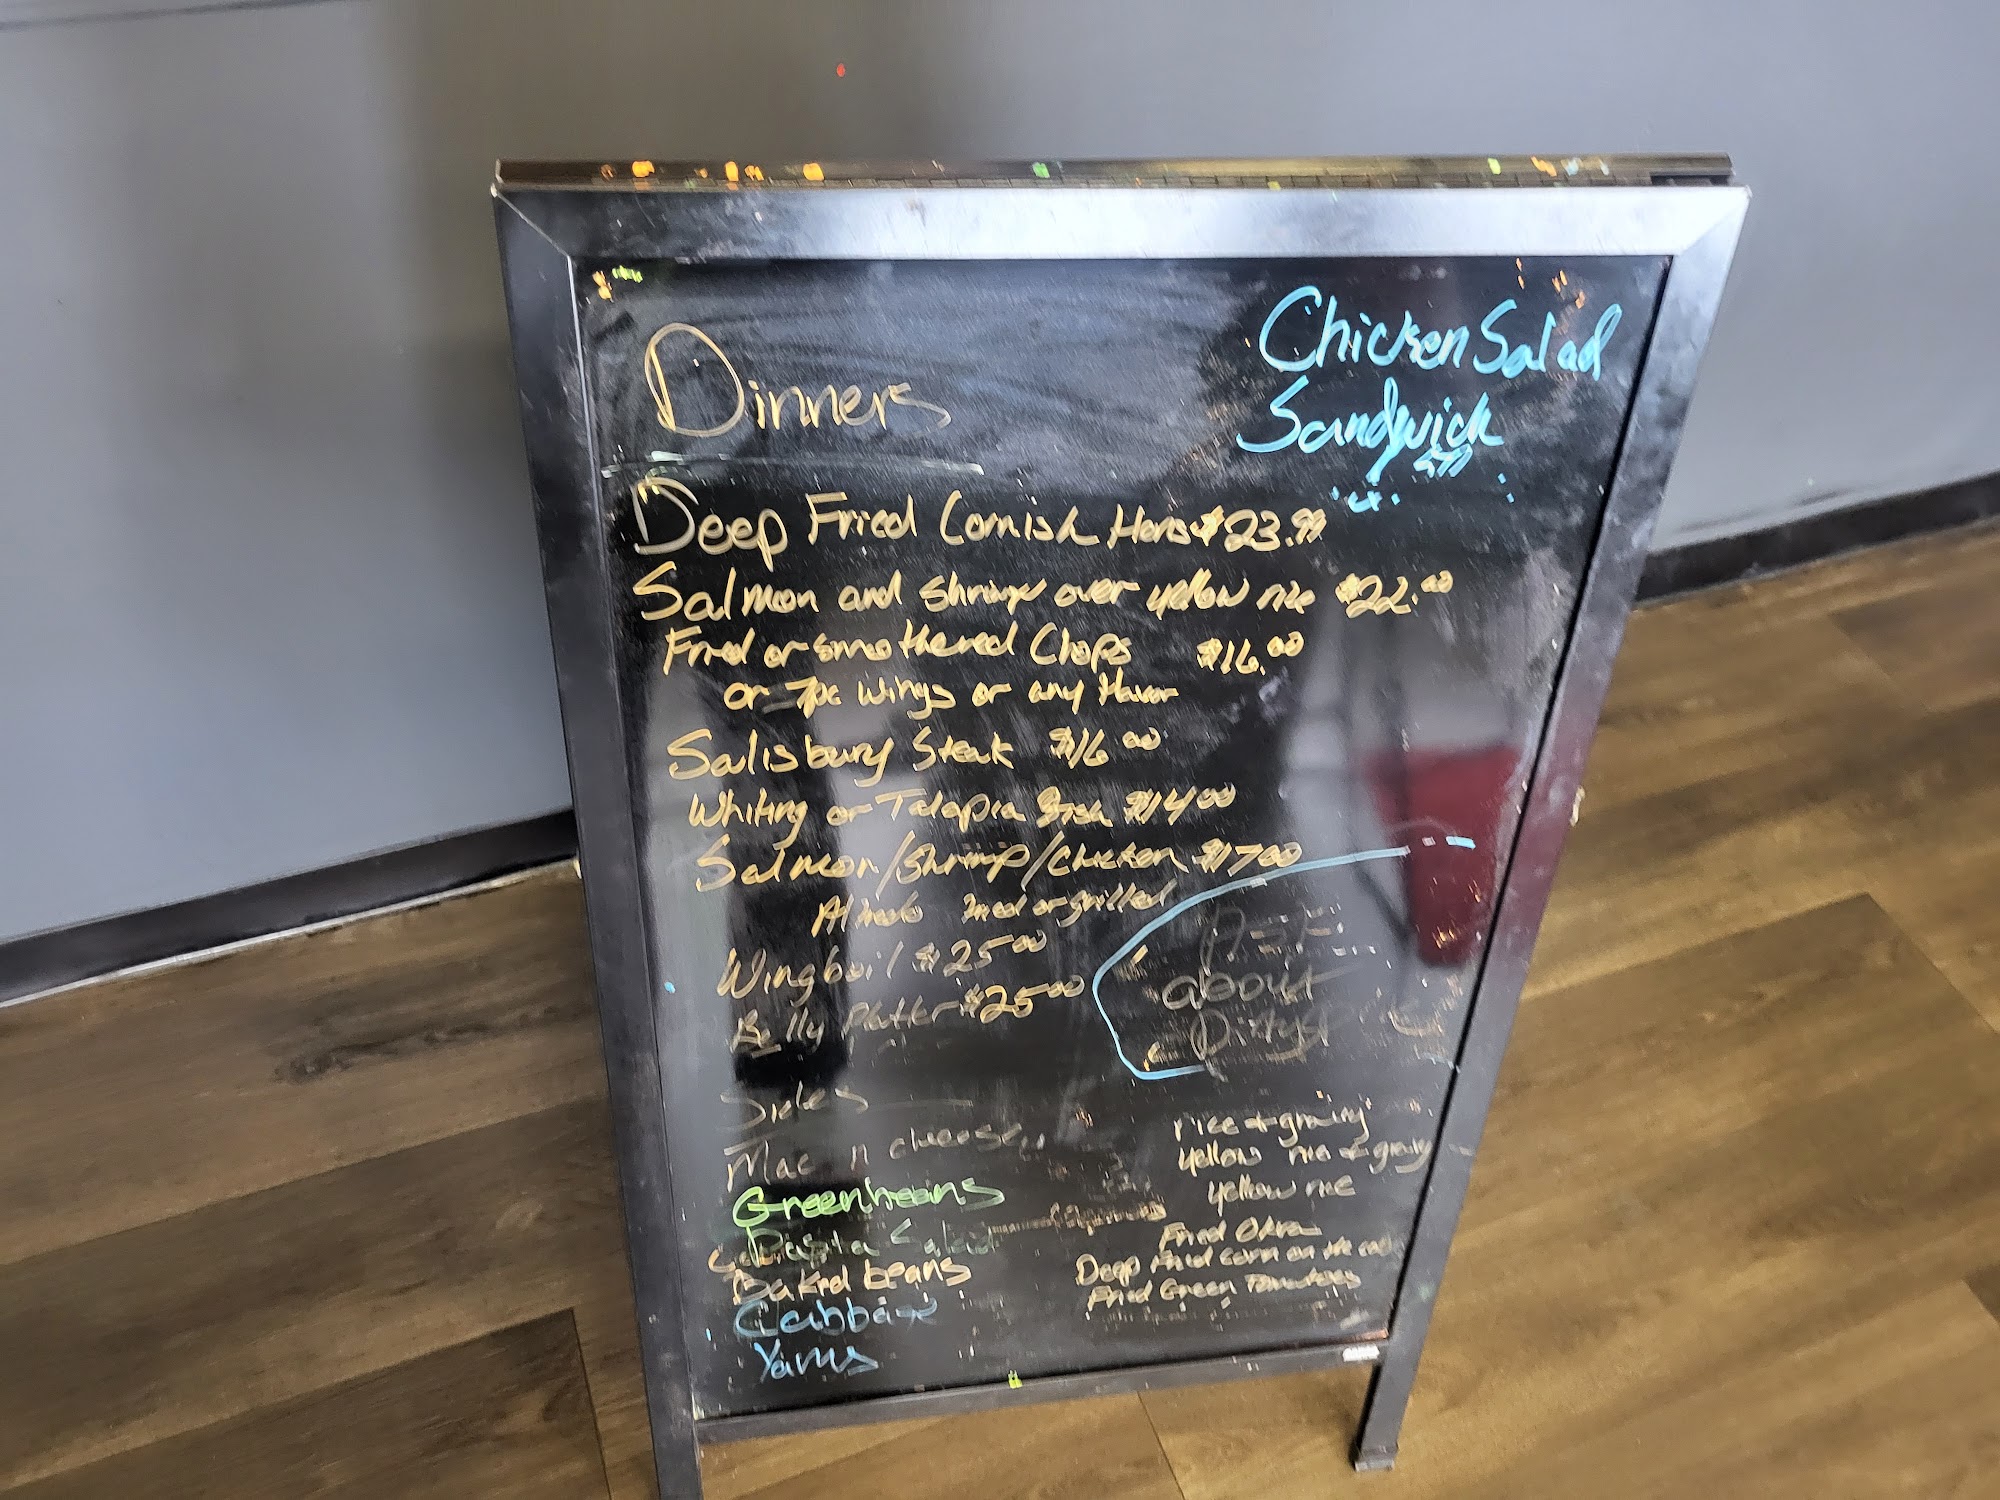 Dinners
Chicken Salad
Sandwich
Deep Fried Cornish Hens $23.99
Salmon and shrimp over yellow rice $22.00
Fried or smothered Chops $16.00
or 7pc wings or any flavor
Salisbury Steak $16.00
Whiting or Talapia fish $14.00
Salmon/Shrimp/Chicken $17.00
Alfredo fried or grilled
Wingboil $25.00
Belly Platter $25.00
about
Sides
Mac n cheese
Greenbeans
Pasta Salad
Baked beans
Cabbage
Yams
rice & gravy
yellow rice & gravy
yellow rice
Fried Okra
Deep fried corn on the cob
Fried Green Tomatoes